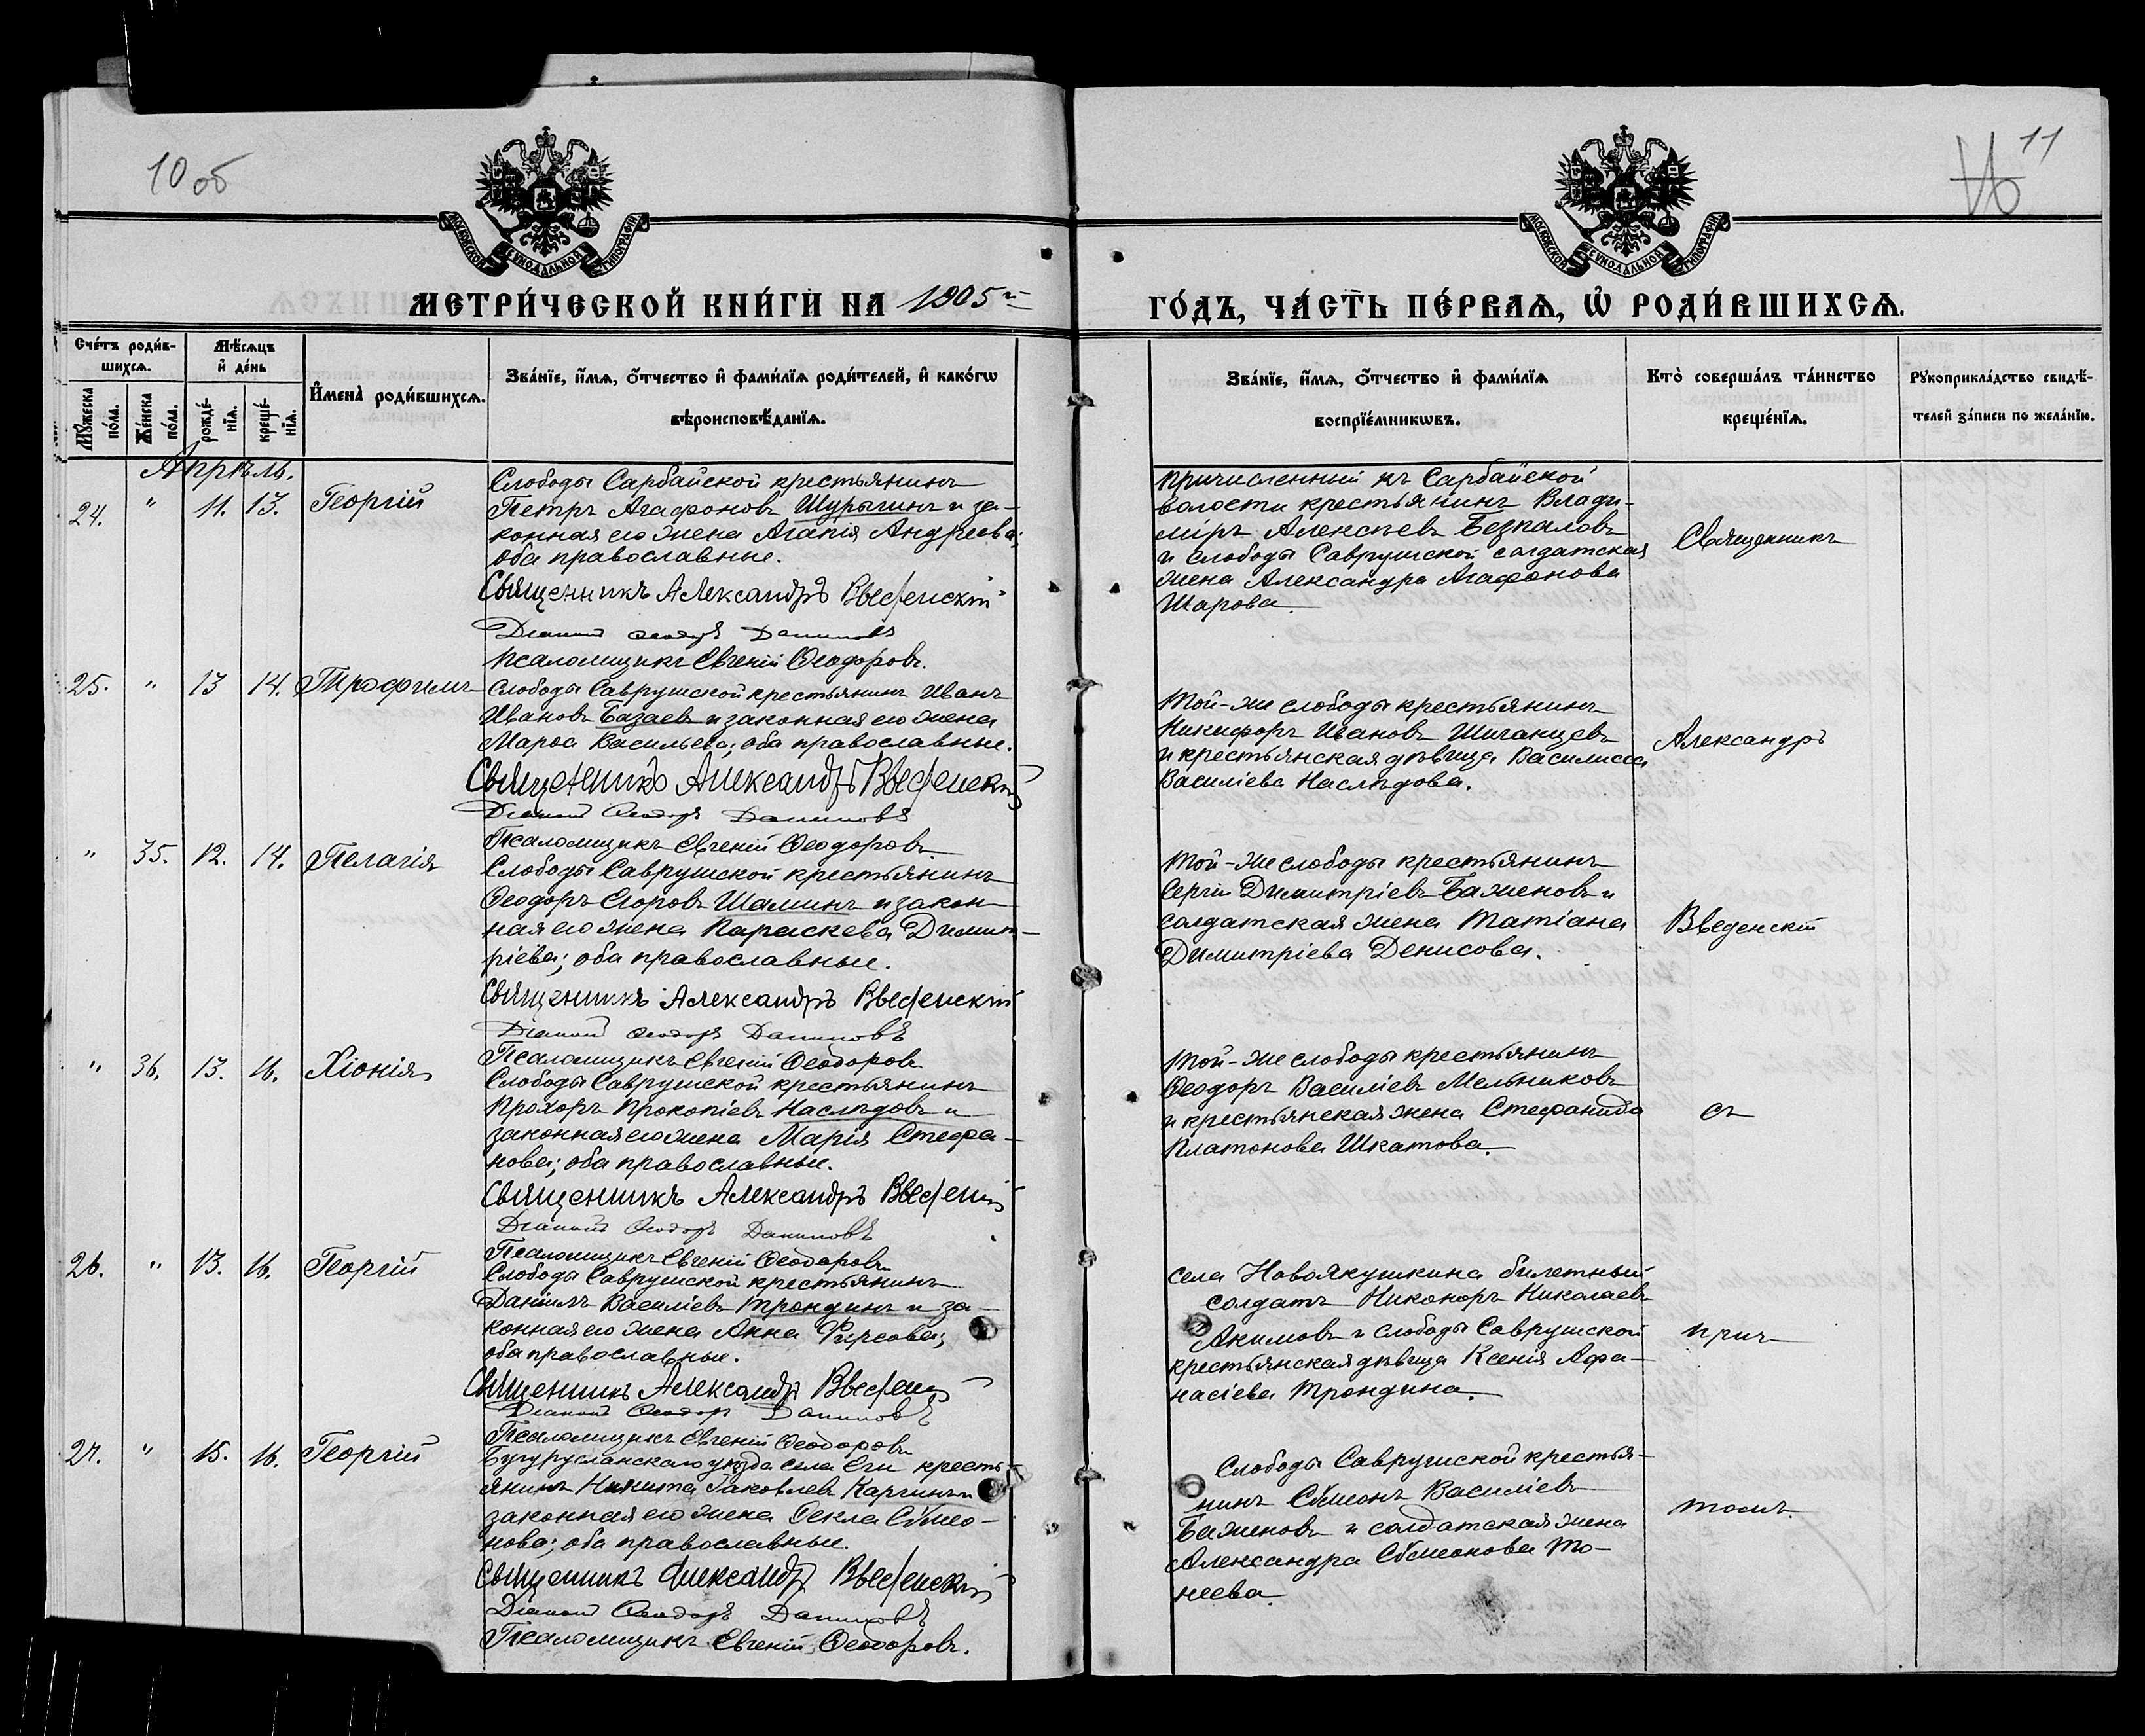 10 об
11
МОСКОВСКОЙ СѴНОДАЛЬНОЙ ТИПОГРАФІИ
МОСКОВСКОЙ СѴНОДАЛЬНОЙ ТИПОГРАФІИ
МЕТРИ́ЧЕСКОЙ КНИ́ГИ НА 1905й
ГО́ДЪ, ЧА́СТЬ ПЕ́РВАѦ, Ѡ РОДИ́ВШИХСѦ.
Сче́тъ роди́в-
шихсѧ.
Мѣ́сѧцъ
и҆ де́нь
Мꙋ́жеска
по́ла.
Же́нска
по́ла.
рожде́-
нїѧ.
креще́-
нїѧ.
И҆мена̀ роди́вшихсѧ.
Зва́нїе, и҆́мѧ, ѻ҆́тчество и҆ фами́лїѧ роди́телей, и҆ како́гѡ
вѣроисповѣ́данїѧ.
Зва́нїе, и҆́мѧ, ѻ҆́тчество и҆ фами́лїѧ
воспрїе́мникѡвъ.
Кто̀ соверша́лъ та́инство
креще́нїѧ.
Рꙋкоприкла́дство свидѣ́-
телей за́писи по жела́нїю.
Апрѣль.
24. " 11. 13. Георгій
Слободы Сарбайской крестьянинъ
Петръ Агафоновъ Шурыгинъ и за-
конная его жена Агапія Андреева;
оба православные.
Священникъ Александръ Введенскій
Діаконъ Ѳеодоръ Даниловъ
Псаломщикъ Евгеній Ѳеодоровъ.
Причисленный къ Сарбайской
волости крестьянинъ Влади-
міръ Алексѣевъ Безпаловъ
и слободы Саврушской солдатская
жена Александра Агафонова
Шарова.
Священникъ
25. " 13 14. Трофимъ
Слободы Саврушской крестьянинъ Иванъ
Ивановъ Базаевъ и законная его жена
Марѳа Васильева; оба православные.
Священникъ Александръ Введенскій
Діаконъ Ѳеодоръ Даниловъ
Псаломщикъ Евгеній Ѳеодоровъ
Той-же слободы крестьянинъ
Никифоръ Ивановъ Шиганцевъ
и крестьянская дѣвица Василисса
Василіева Наслѣдова.
Александръ
" 35. 12. 14. Пелагія
Слободы Саврушской крестьянинъ
Ѳеодоръ Егоровъ Шаминъ и закон-
ная его жена Параскева Димит-
ріева; оба православные.
Священникъ Александръ Введенскій
Діаконъ Ѳеодоръ Даниловъ
Псаломщикъ Евгеній Ѳеодоровъ
Той-же слободы крестьянинъ
Сергій Димитріевъ Баженовъ и
солдатская жена Татіана
Димитріева Денисова.
Введенскій
" 36. 13. 16. Хіонія
Слободы Саврушской крестьянинъ
Прохоръ Прокопіевъ Наслѣдовъ и
законная его жена Марія Стефа-
нова; оба православные.
Священникъ Александръ Введенскій
Діаконъ Ѳеодоръ Даниловъ
Псаломщикъ Евгеній Ѳеодоровъ
Той-же слободы крестьянинъ
Ѳеодоръ Василіевъ Мельниковъ
и крестьянская жена Стефанида
Платонова Шкатова.
съ
26. " 13. 16. Георгій
Слободы Саврушской крестьянинъ
Даніилъ Василіевъ Трондинъ и за-
конная его жена Анна Фирсова;
оба православные.
Священникъ Александръ Введенскій
Діаконъ Ѳеодоръ Даниловъ
Псаломщикъ Евгеній Ѳеодоровъ
села Новоякушкина билетный
солдатъ Никоноръ Николаевъ
Акимовъ и слободы Саврушской
крестьянская дѣвица Ксенія Афа-
насіева Трондина.
прич-
27. " 15. 16. Георгій
Бугурусланскаго уѣзда села Еги кресть-
янинъ Никита Іаковлевъ Каргинъ и
законная его жена Ѳекла Сѵмео-
нова; оба православные.
Священникъ Александръ Введенскій
Діаконъ Ѳеодоръ Даниловъ
Псаломщикъ Евгеній Ѳеодоровъ.
Слободы Саврушской крестья-
нинъ Сѵмеонъ Василіевъ
Баженовъ и солдатская жена
Александра Сѵмеонова То-
неева.
томъ.